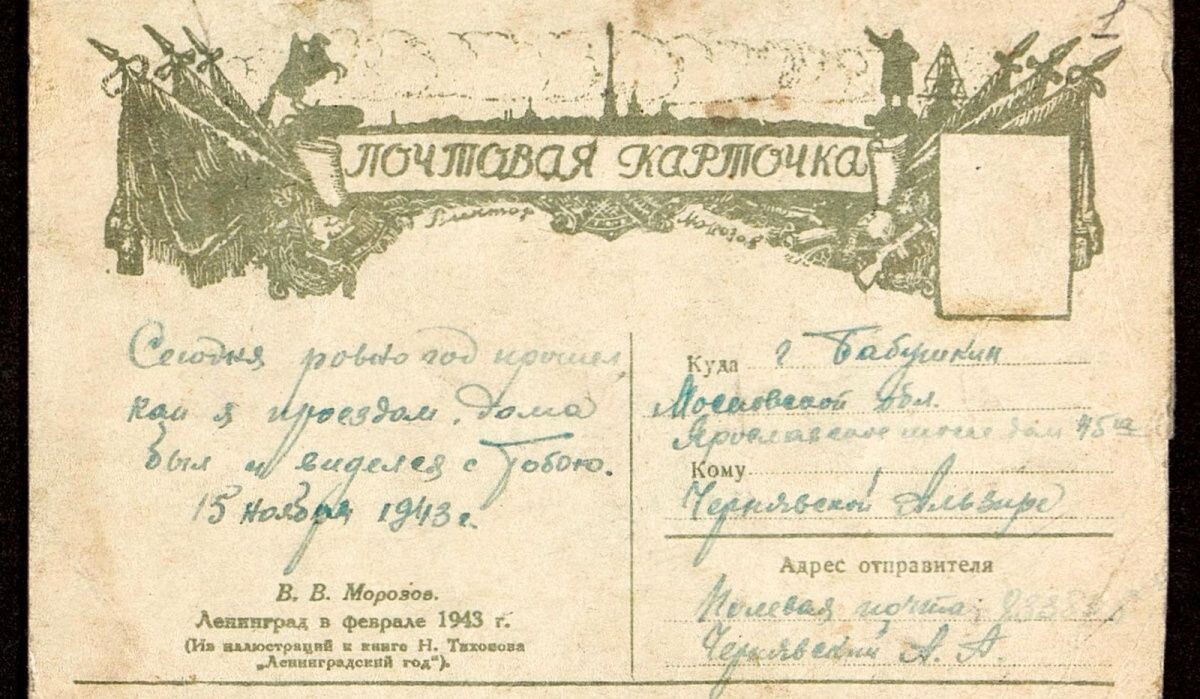 1
ПОЧТОВАЯ КАРТОЧКА
Виктор Морозов
Сегодня ровно год прошел,
как я проездом дома
был и виделся с Тобою.
15 ноября 1943 г.
В. В. Морозов.
Ленинград в феврале 1943 г.
(Из иллюстраций к книге Н. Тихонова
„Ленинградский год").
Куда г Бабушкин
Московской обл.
Ярославское шоссе дом
Кому
Чернявской Эльзире
Адрес отправителя
Полевая почта
Чернявский А. А.